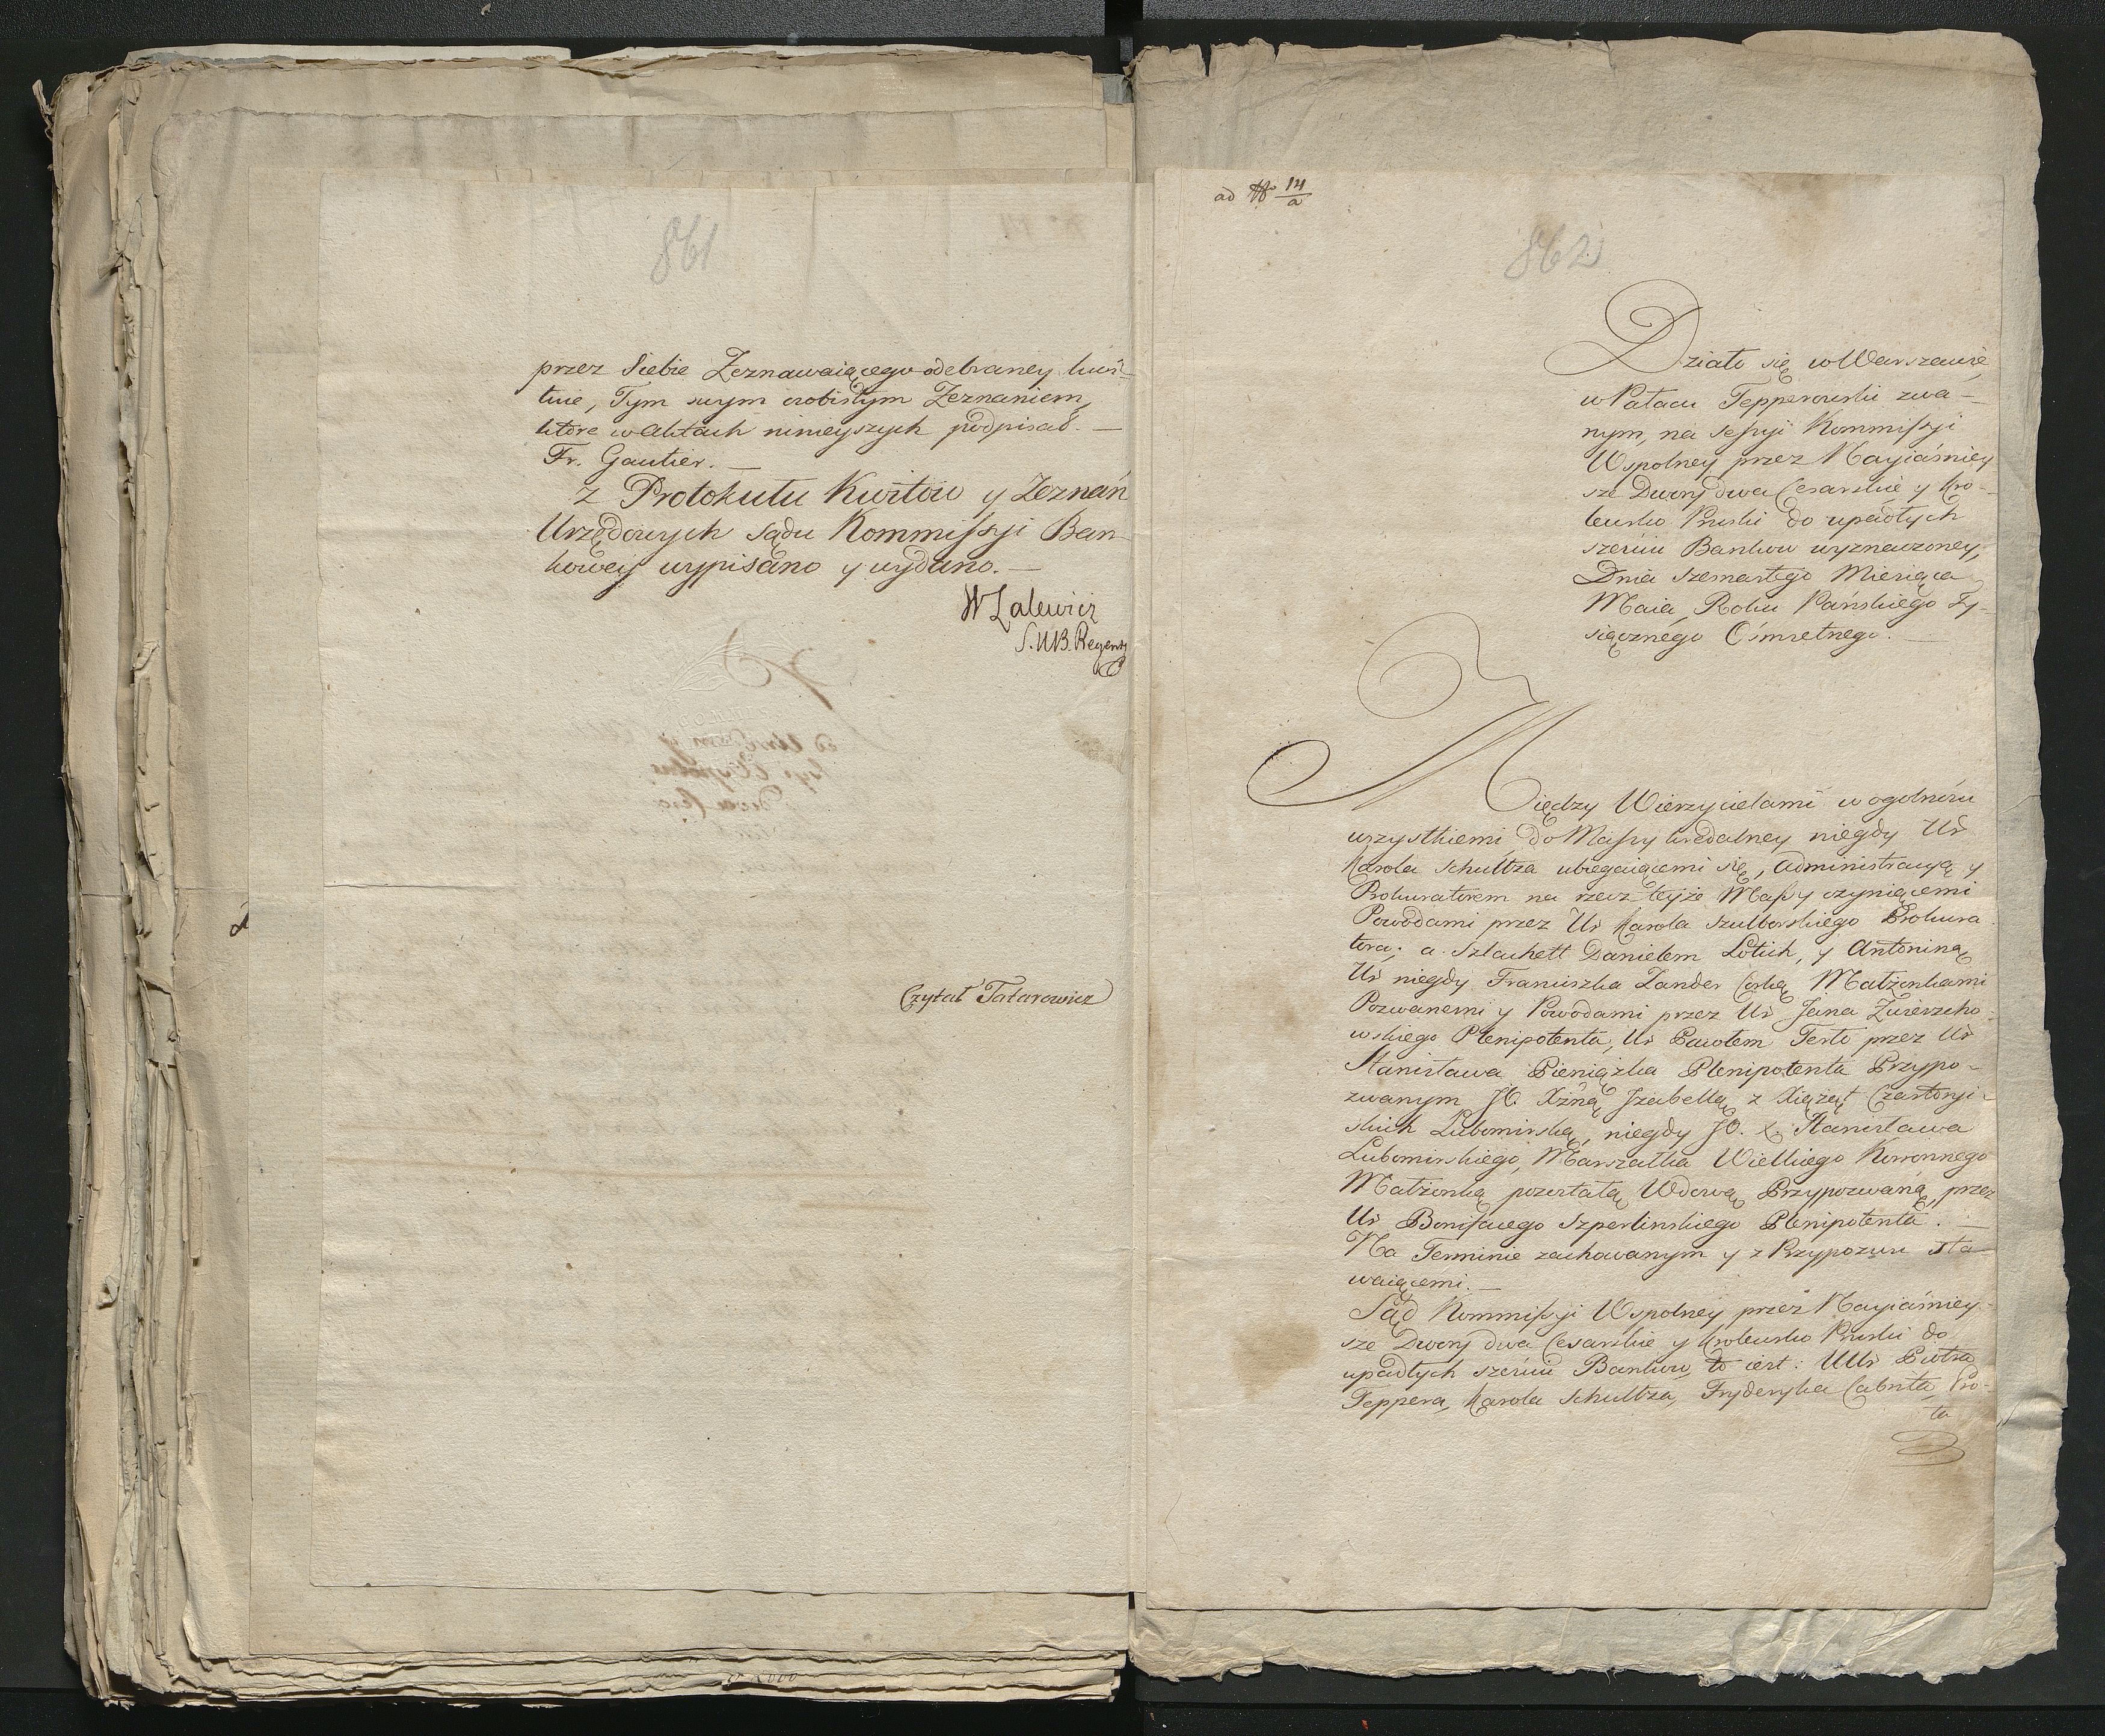 861
przez Siebie Zeznawaiącego odebraney kwit-
tuie, Tym swym osobistym Zeznaniem,
ktore w Aktach ninieyszych podpisał. —
Fr. Gautier. —
z Protokułu Kwitow y Zeznań
Urzędowych Sądu Kommissyi Ban-
kowey wypisano y wydano. —
W Zalewicz
Czytał Tatarowicz
ad N 14/a
862
Działo się w Warszawie,
w Pałacu Tepperowski zwa-
nym, na Sessyi Kommissyi
Wspolney przez Nayiaśniey
sze Dwory dwa Cesarskie y Kro-
lewsko Pruski do upadłych
sześciu Bankow wyznaczoney,
Dnia szesnastego Miesiąca
Maia, Roku Pańskiego Ty-
siącznego Ośmsetnego. —
Między Wierzycielami w ogolności
wszystkiemi do Massy kredalney niegdy Ur
Karola Schultza ubiegaiącemi się, Administracyą y
Prokuratorem na rzecz teyże Massy czyniącemi
Powodami przez Ur Karola Szulborskiego Prokura
tora; a Szlachett Danielem Lotich, y Antoniną
Ur niegdy Franciszka Zander Corką Małżonkami
Pozwanemi y Powodami przez Ur Jana Zwierzcho-
wskiego Plenipotenta, Ur Pawłem Ferło przez Ur
Stanisława Pieniążka Plenipotenta Przypo-
zwanym JO. Xżną Jzabellą z Xiążąt Czartoryi-
skich Lubomirską, niegdy JO. X. Stanisława
Lubomirskiego, Marszałka Wielkiego Koronnego
Małżonką pozostałą Wdową Przypozwaną, przez
Ur Bonifacego Szperlinskiego Plenipotenta. —
Na Terminie zachowanym y z Przypozwu sta-
waiącemi. —
Sąd Kommissyi Wspolney przez Nayiaśniey-
sze Dwory dwa Cesarskie y Krolewsko Pruski do
upadłych sześciu Bankow, to iest: UUr Piotra
Teppera, Karola Schultza, Fryderyka Cabrita, Pro-
ta